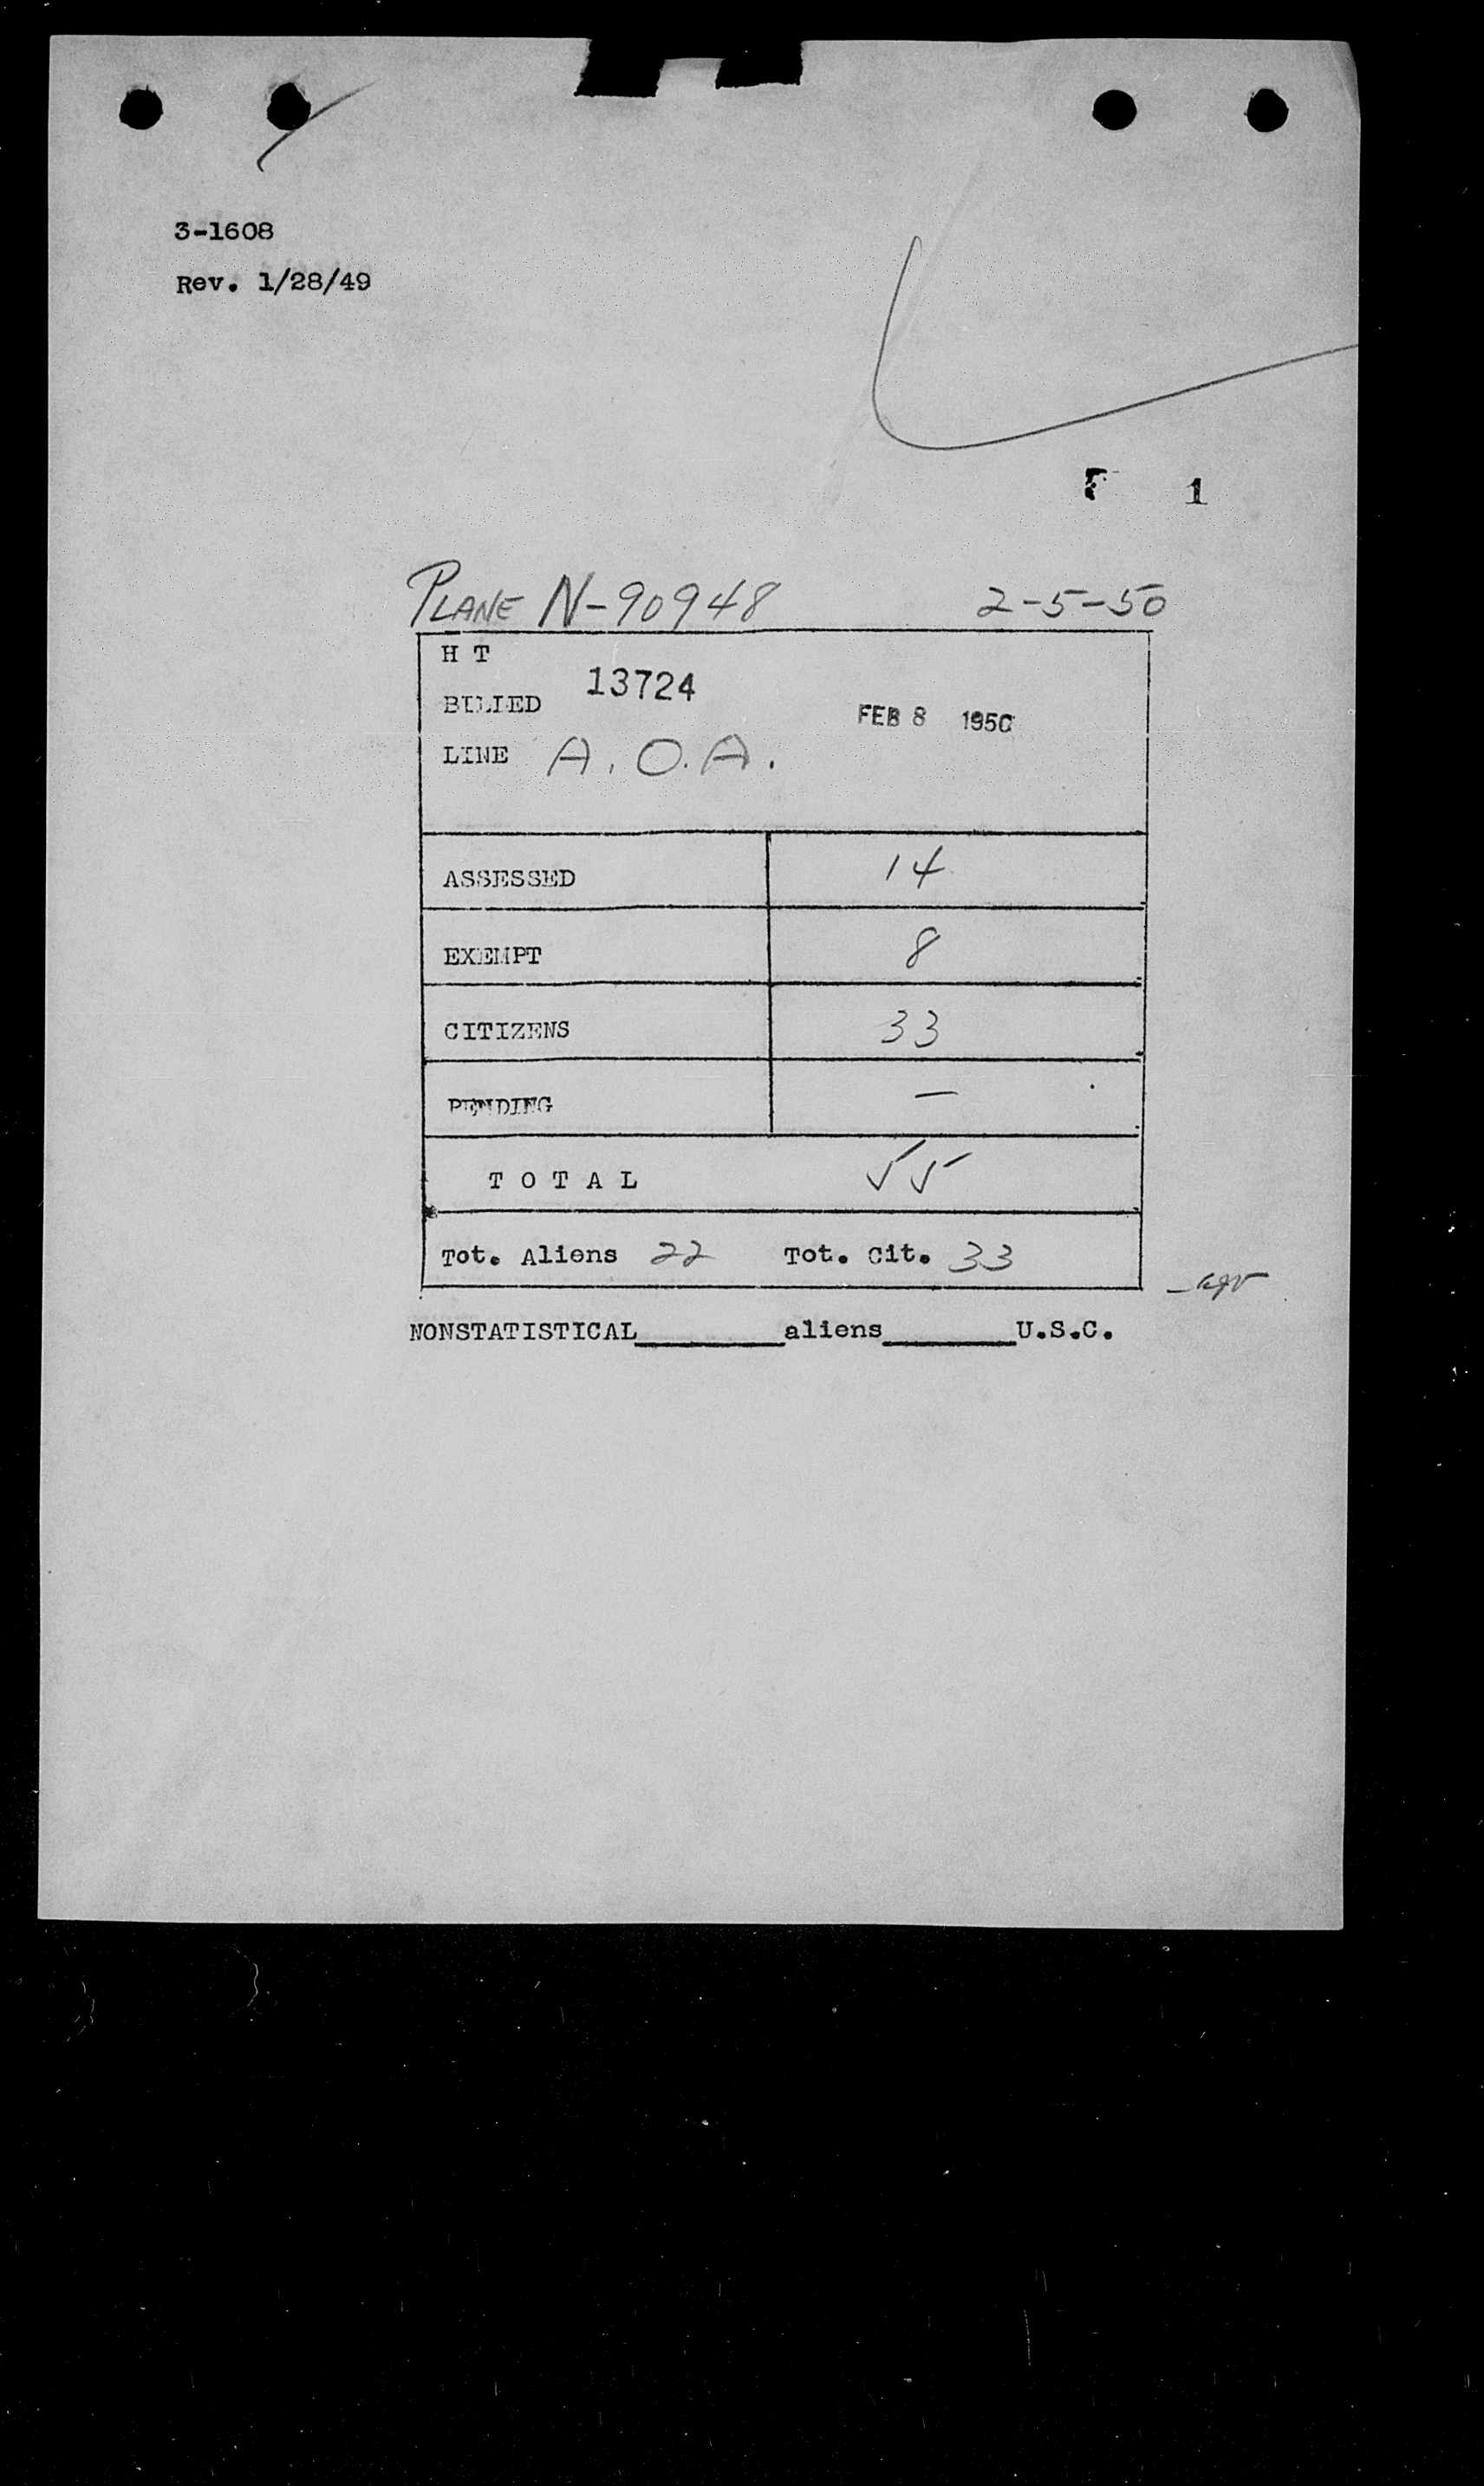 3-1608
Rev. 1/28/49
F 1
PLANE N-90948 2-5-50
H T
BILLED 13724 FEB 8 1950
LINE A.O.A.
ASSESSED 14
EXEMPT 8
CITIZENS 33
PENDING —
T O T A L 55
Tot. Aliens 22 Tot. Cit. 33
NONSTATISTICAL________aliens________U.S.C.